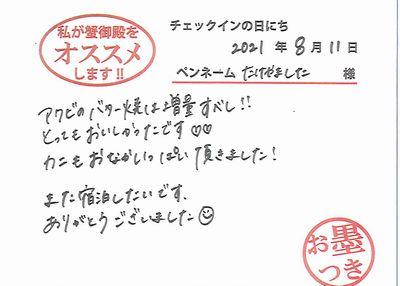 私が蟹御殿を
オススメ
します!!
チェックインの日にち
2021 年 8 月 11 日
ペンネーム たけやました 様
アワビのバター焼は増量すべし!!
とってもおいしかったです♡♡
カニもおなかいっぱい頂きました!
また宿泊したいです。
ありがとうございました☺
お墨
つき